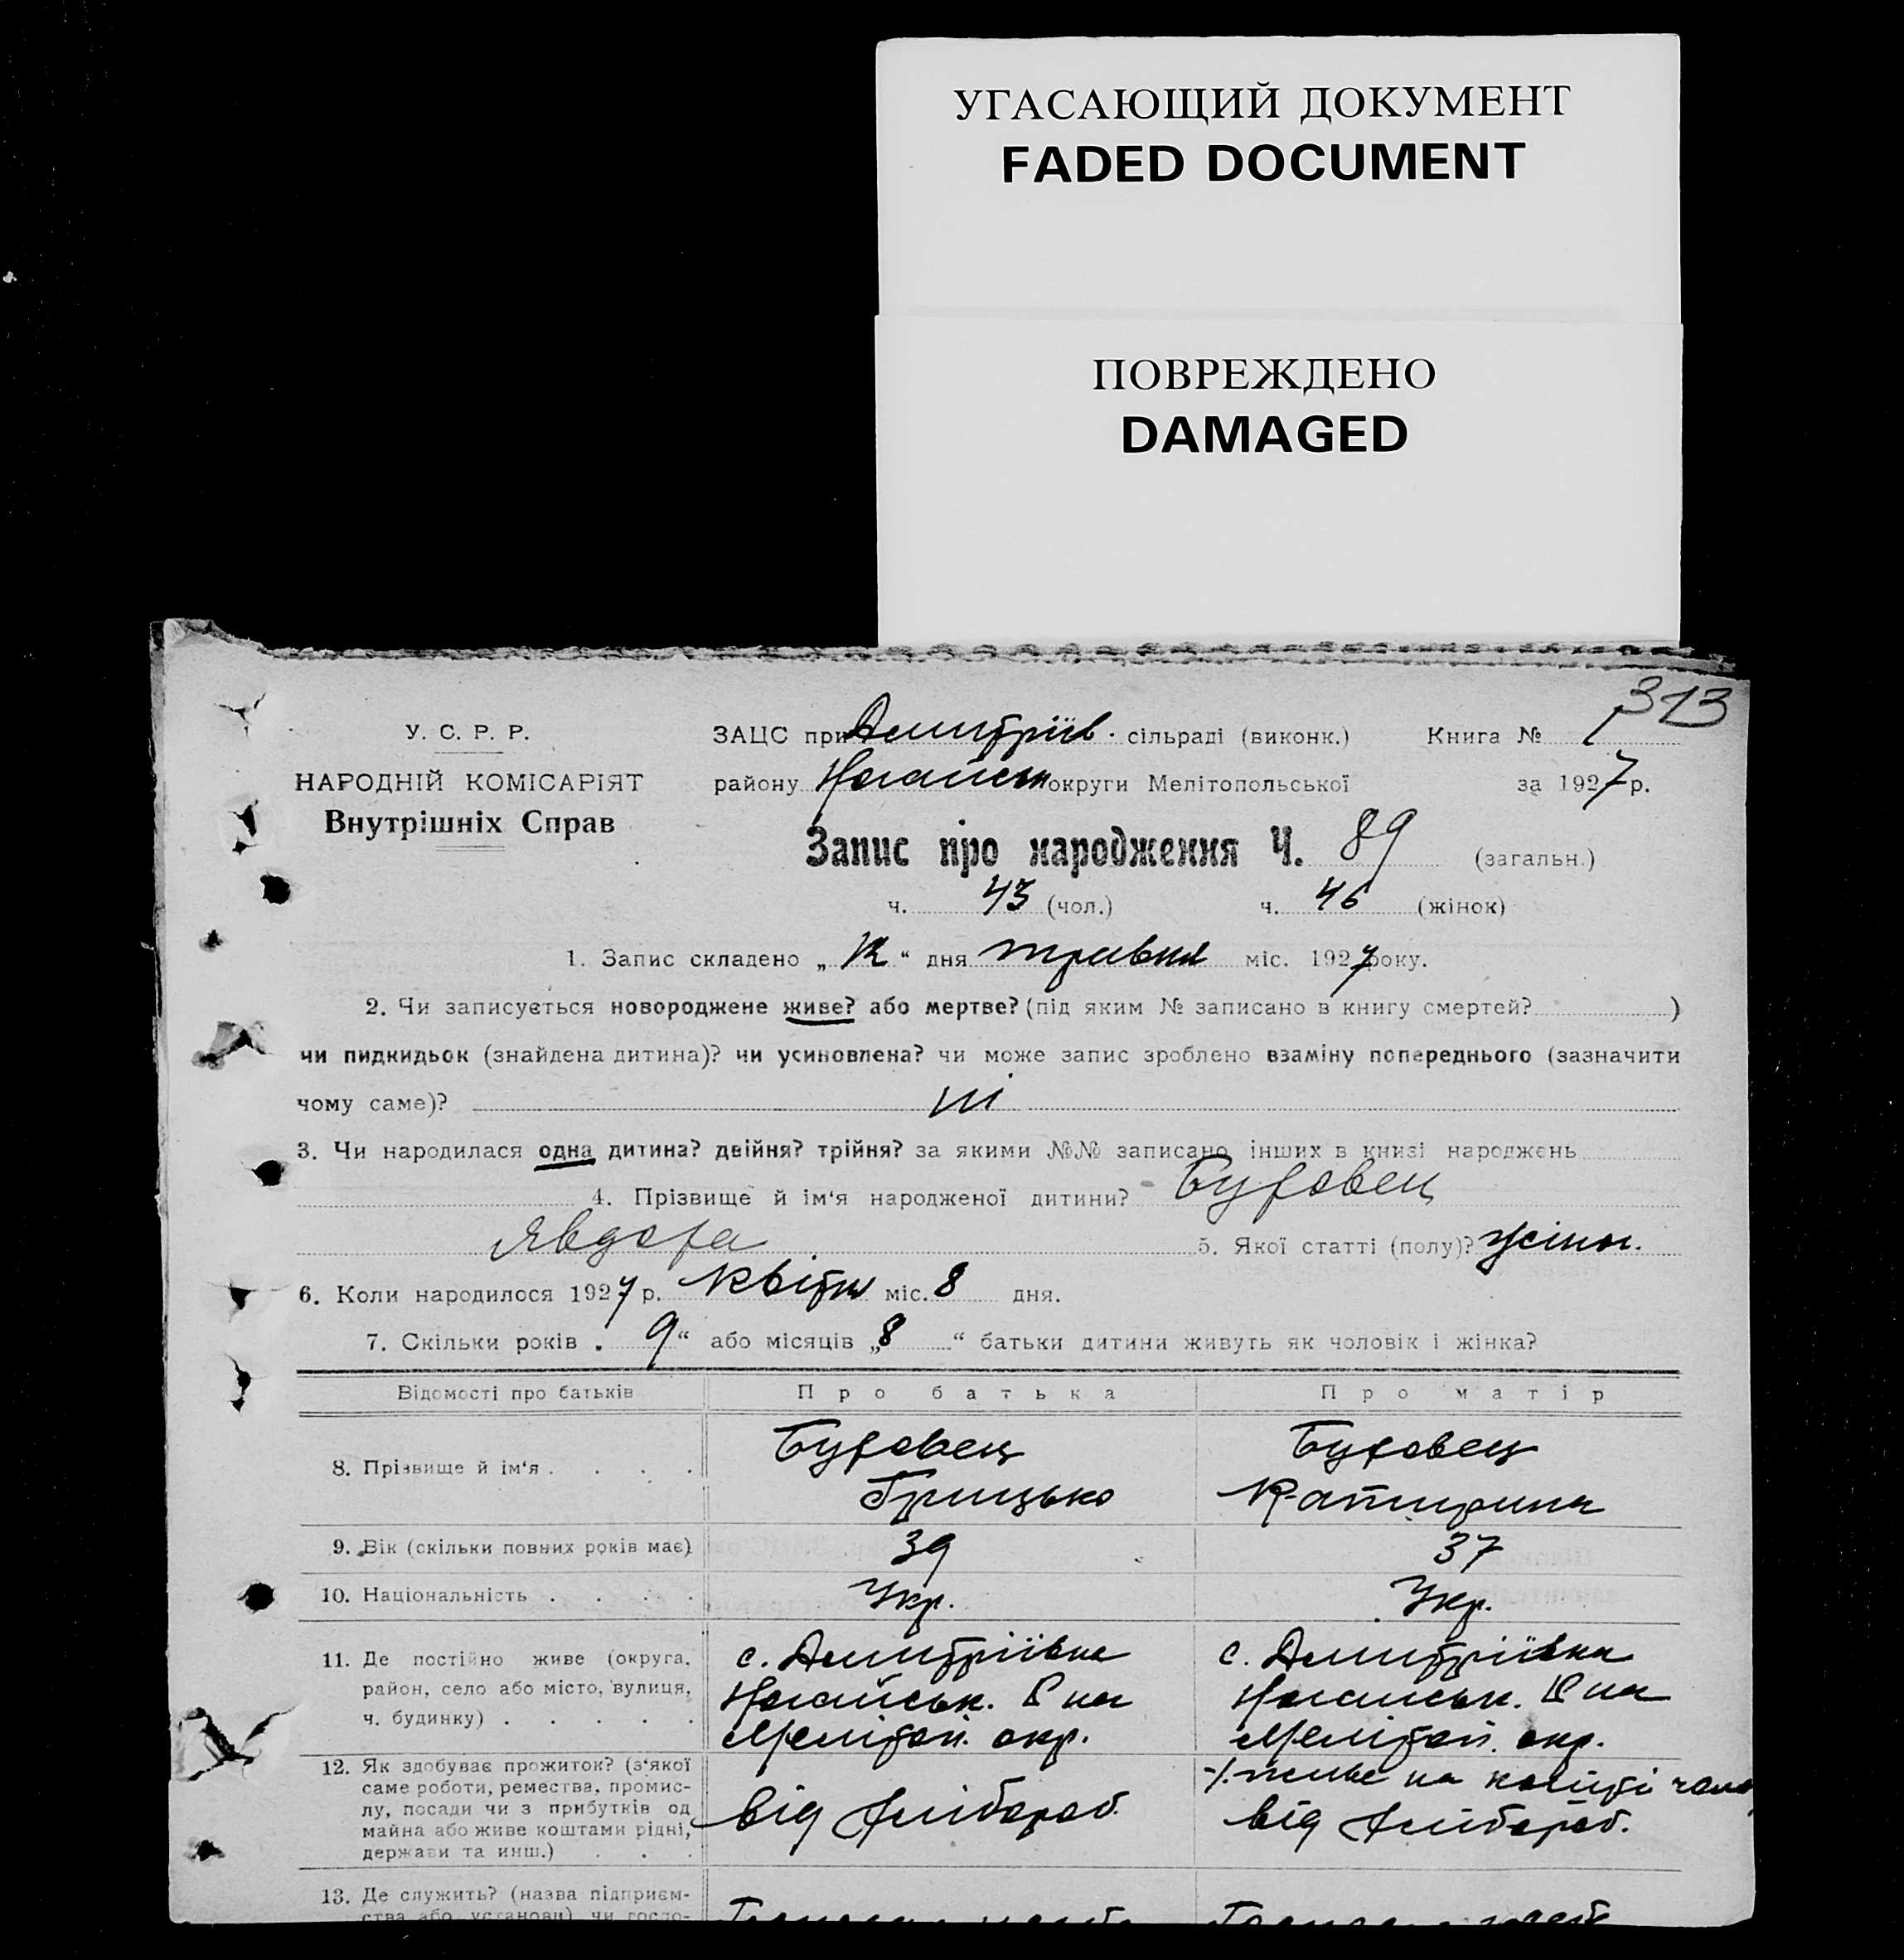 УГАСАЮЩИЙ ДОКУМЕНТ
FADED DOCUMENT
ПОВРЕЖДЕНО
DAMAGED
313
У. С. Р. Р.
НАРОДНІЙ КОМІСАРІЯТ
Внутрішніх Справ
ЗАЦС при Дмитрів. сільраді (виконк.) Книга № 1
району Ногайськ округи Мелітопольської за 1927 р.
Запис про народження Ч. 89 (загальн.)
ч. 43 (чол.) ч. 46 (жінок)
1. Запис складено „ “ дня травня міс. 1927 року.
2. Чи записується новороджене живе? або мертве? (під яким № записано в книгу смертей? )
чи пидкидьок (знайдена дитина)? чи усиновлена? чи може запис зроблено взаміну попереднього (зазначити
чому саме)? ні
3. Чи народилася одна дитина? двійня? трійня? за якими №№ записано інших в книзі народжень
4. Прізвище й ім‘я народженої дитини? Буховець
Явдоха 5. Якої статті (полу)? жіноч.
6. Коли народилося 1927 р. Квітн міс. 8 дня.
7. Скільки років „ 9 “ або місяців „ 8 “ батьки дитини живуть як чоловік і жінка?
Відомості про батьків Про батька Про матір
8. Прізвище й ім‘я . . . . Буховець Буховець
Грицько Катирина
9. Вік (скільки повних років має) 39 37
10. Національність . . . . Укр. Укр.
11. Де постійно живе (округа, с. Дмитріївка с. Дмитріївка
район, село або місто, вулиця, Ногайськ. Р на Ногайськ. Р на
ч. будинку) . . . . . Мелітоп. окр. Мелітоп. окр.
12. Як здобуває прожиток? (з‘якої живе на кошті чолов
саме роботи, ремества, промис-
лу, посади чи з прибутків од від хлібороб. від хлібороб.
майна або живе коштами рідні,
держави та инш.) . . .
13. Де служить? (назва підприєм-
ства або установи) чи госпо-